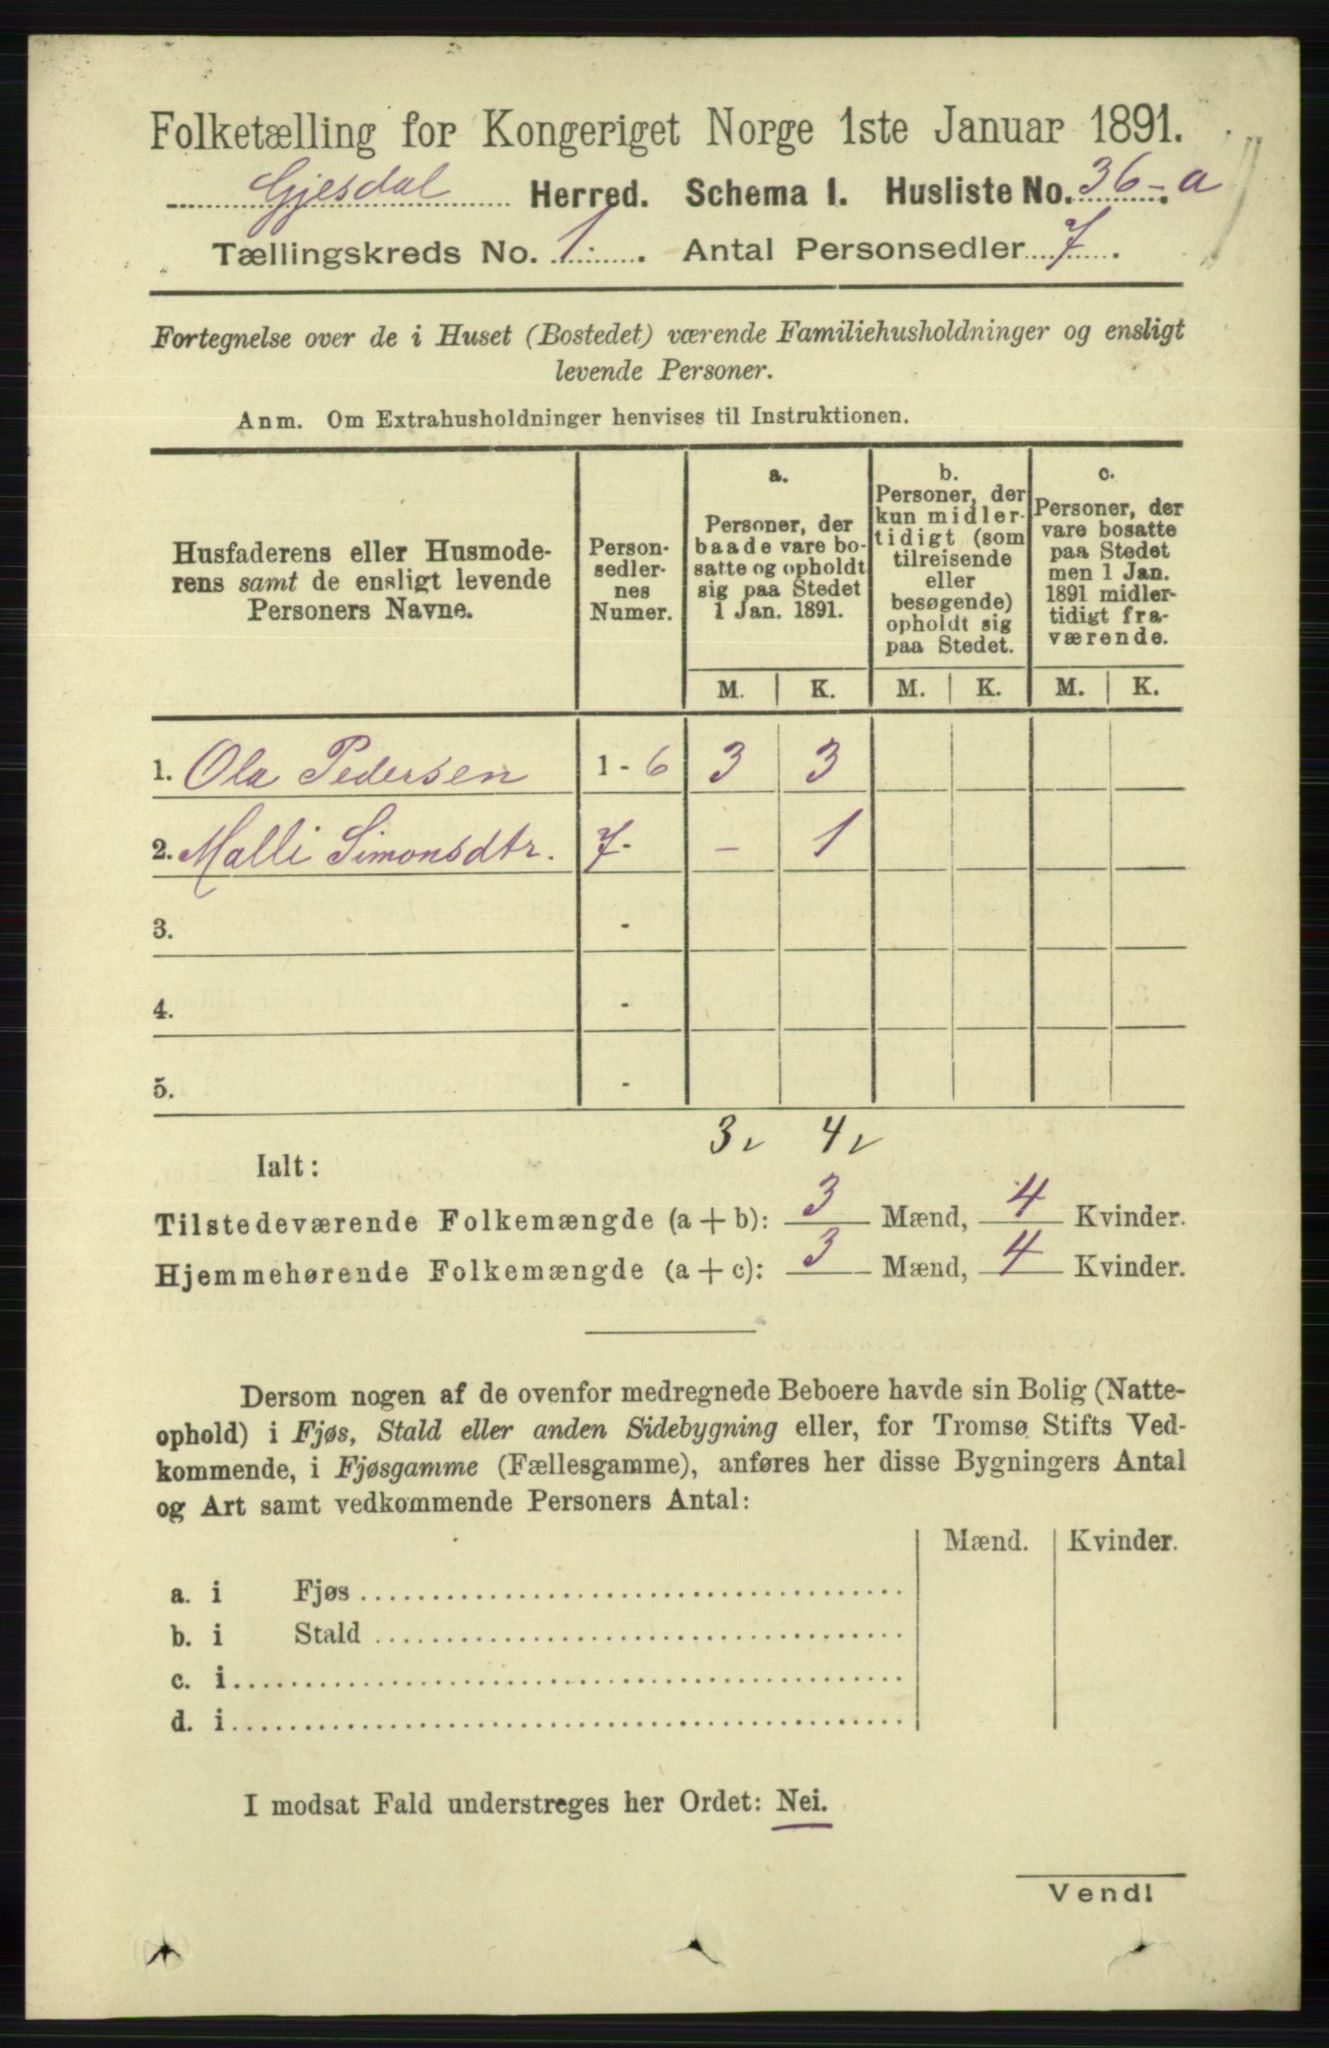 Folketælling for Kongeriget Norge 1ste Januar 1891.
Gjesdal Herred. Schema I. Husliste No. 36-a
Tællingskreds No. 1. Antal Personsedler 7.
Fortegnelse over de i Huset (Bostedet) værende Familiehusholdninger og ensligt
levende Personer.
Anm. Om Extrahusholdninger henvises til Instruktionen.
Husfaderens eller Husmode-
rens samt de ensligt levende
Personers Navne.
Person-
sedler-
nes
Numer.
a.
Personer, der
baade vare bo-
satte og opholdt
sig paa Stedet
1 Jan. 1891.
b.
Personer, der
kun midler-
tidigt (som
tilreisende
eller
besøgende)
opholdt sig
paa Stedet.
c.
Personer, der
vare bosatte
paa Stedet
men 1 Jan.
1891 midler-
tidigt fra-
værende.
M. K. M. K. M. K.
1. Ola Pedersen 1 - 6 3 3
2. Malli Simonsdtr. 7- - 1
3. -
4. -
5. -
3 v 4 v
Ialt:
Tilstedeværende Folkemængde (a + b): 3 Mænd, 4 Kvinder.
Hjemmehørende Folkemængde (a + c): 3 Mænd, 4 Kvinder.
Dersom nogen af de ovenfor medregnede Beboere havde sin Bolig (Natte-
ophold) i Fjøs, Stald eller anden Sidebygning eller, for Tromsø Stifts Ved-
kommende, i Fjøsgamme (Fællesgamme), anføres her disse Bygningers Antal
og Art samt vedkommende Personers Antal:
Mænd. Kvinder.
a. i Fjøs
b. i Stald
c. i
d. i
I modsat Fald understreges her Ordet: Nei.
Vend!